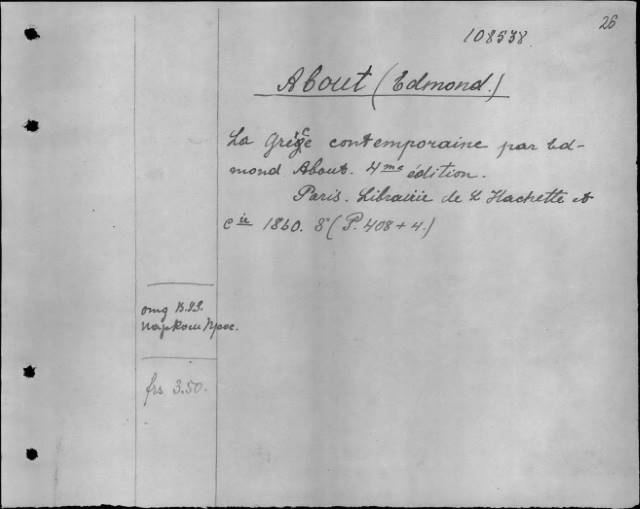 26
108538
About (Edmond.)
La Grèce contemporaine par Ed-
mond About. 4me édition.
Paris. Librairie de L Hachette et
Cie 1860. 8° (P. 408 + 4.)
frs 3.50.